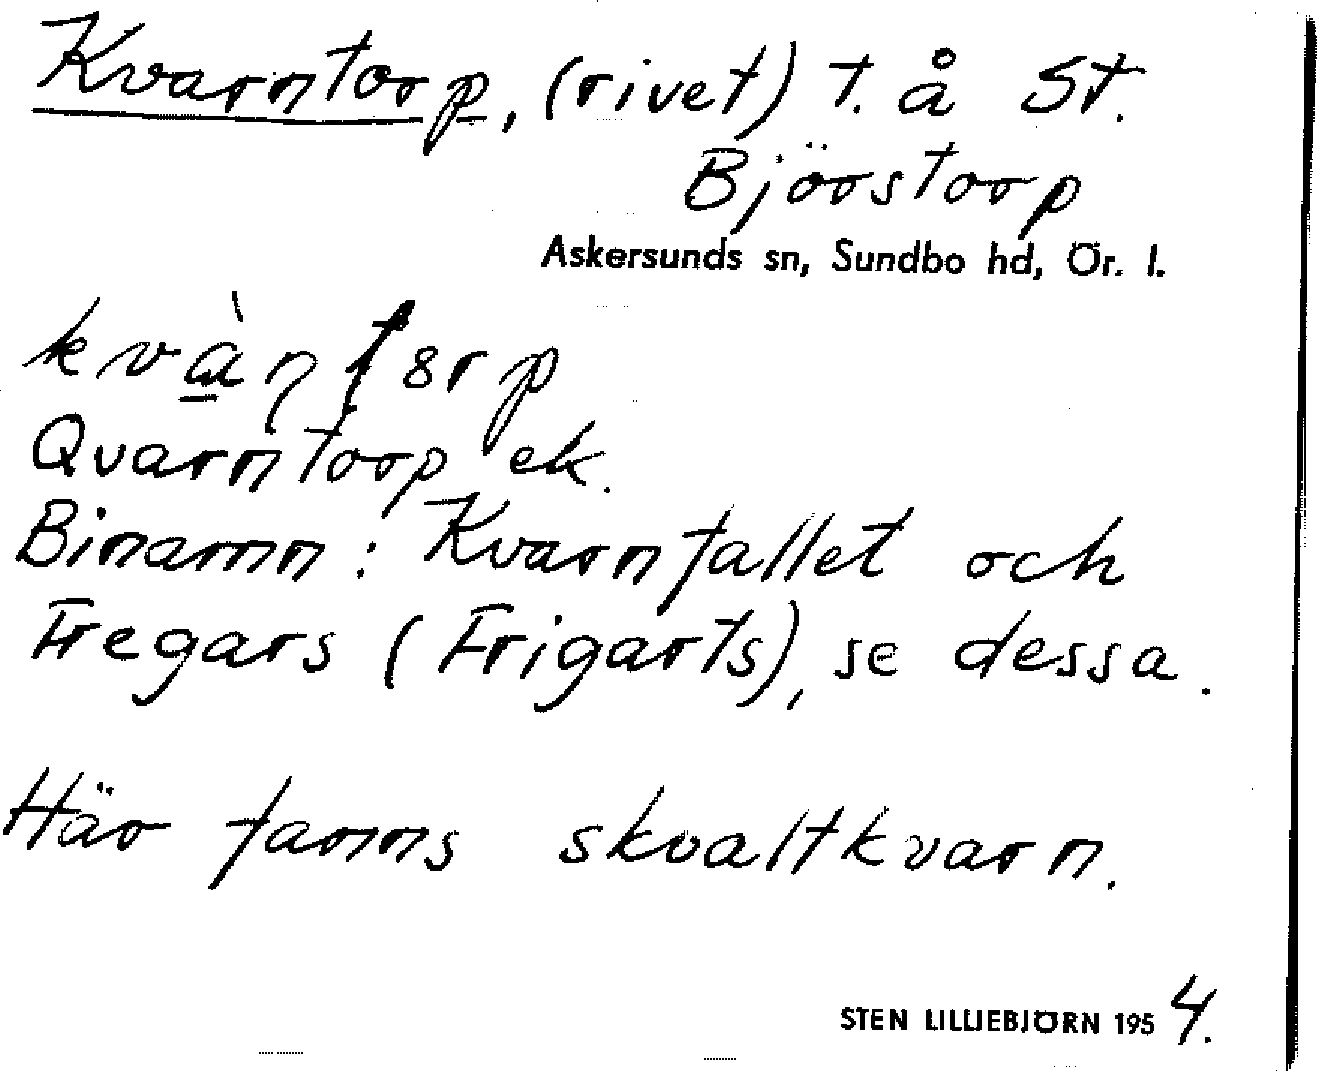 Kvarntorp, (rivet) t. å St.
Björstorp
Askersunds sn, Sundbo hd, Ör. l.
Qvarntorp ek.
Binamn: Kvarnfallet och
Fregars (Frigarts), se dessa.
Här fanns skvaltkvarn.
STEN LILLIEBJÖRN 1954.